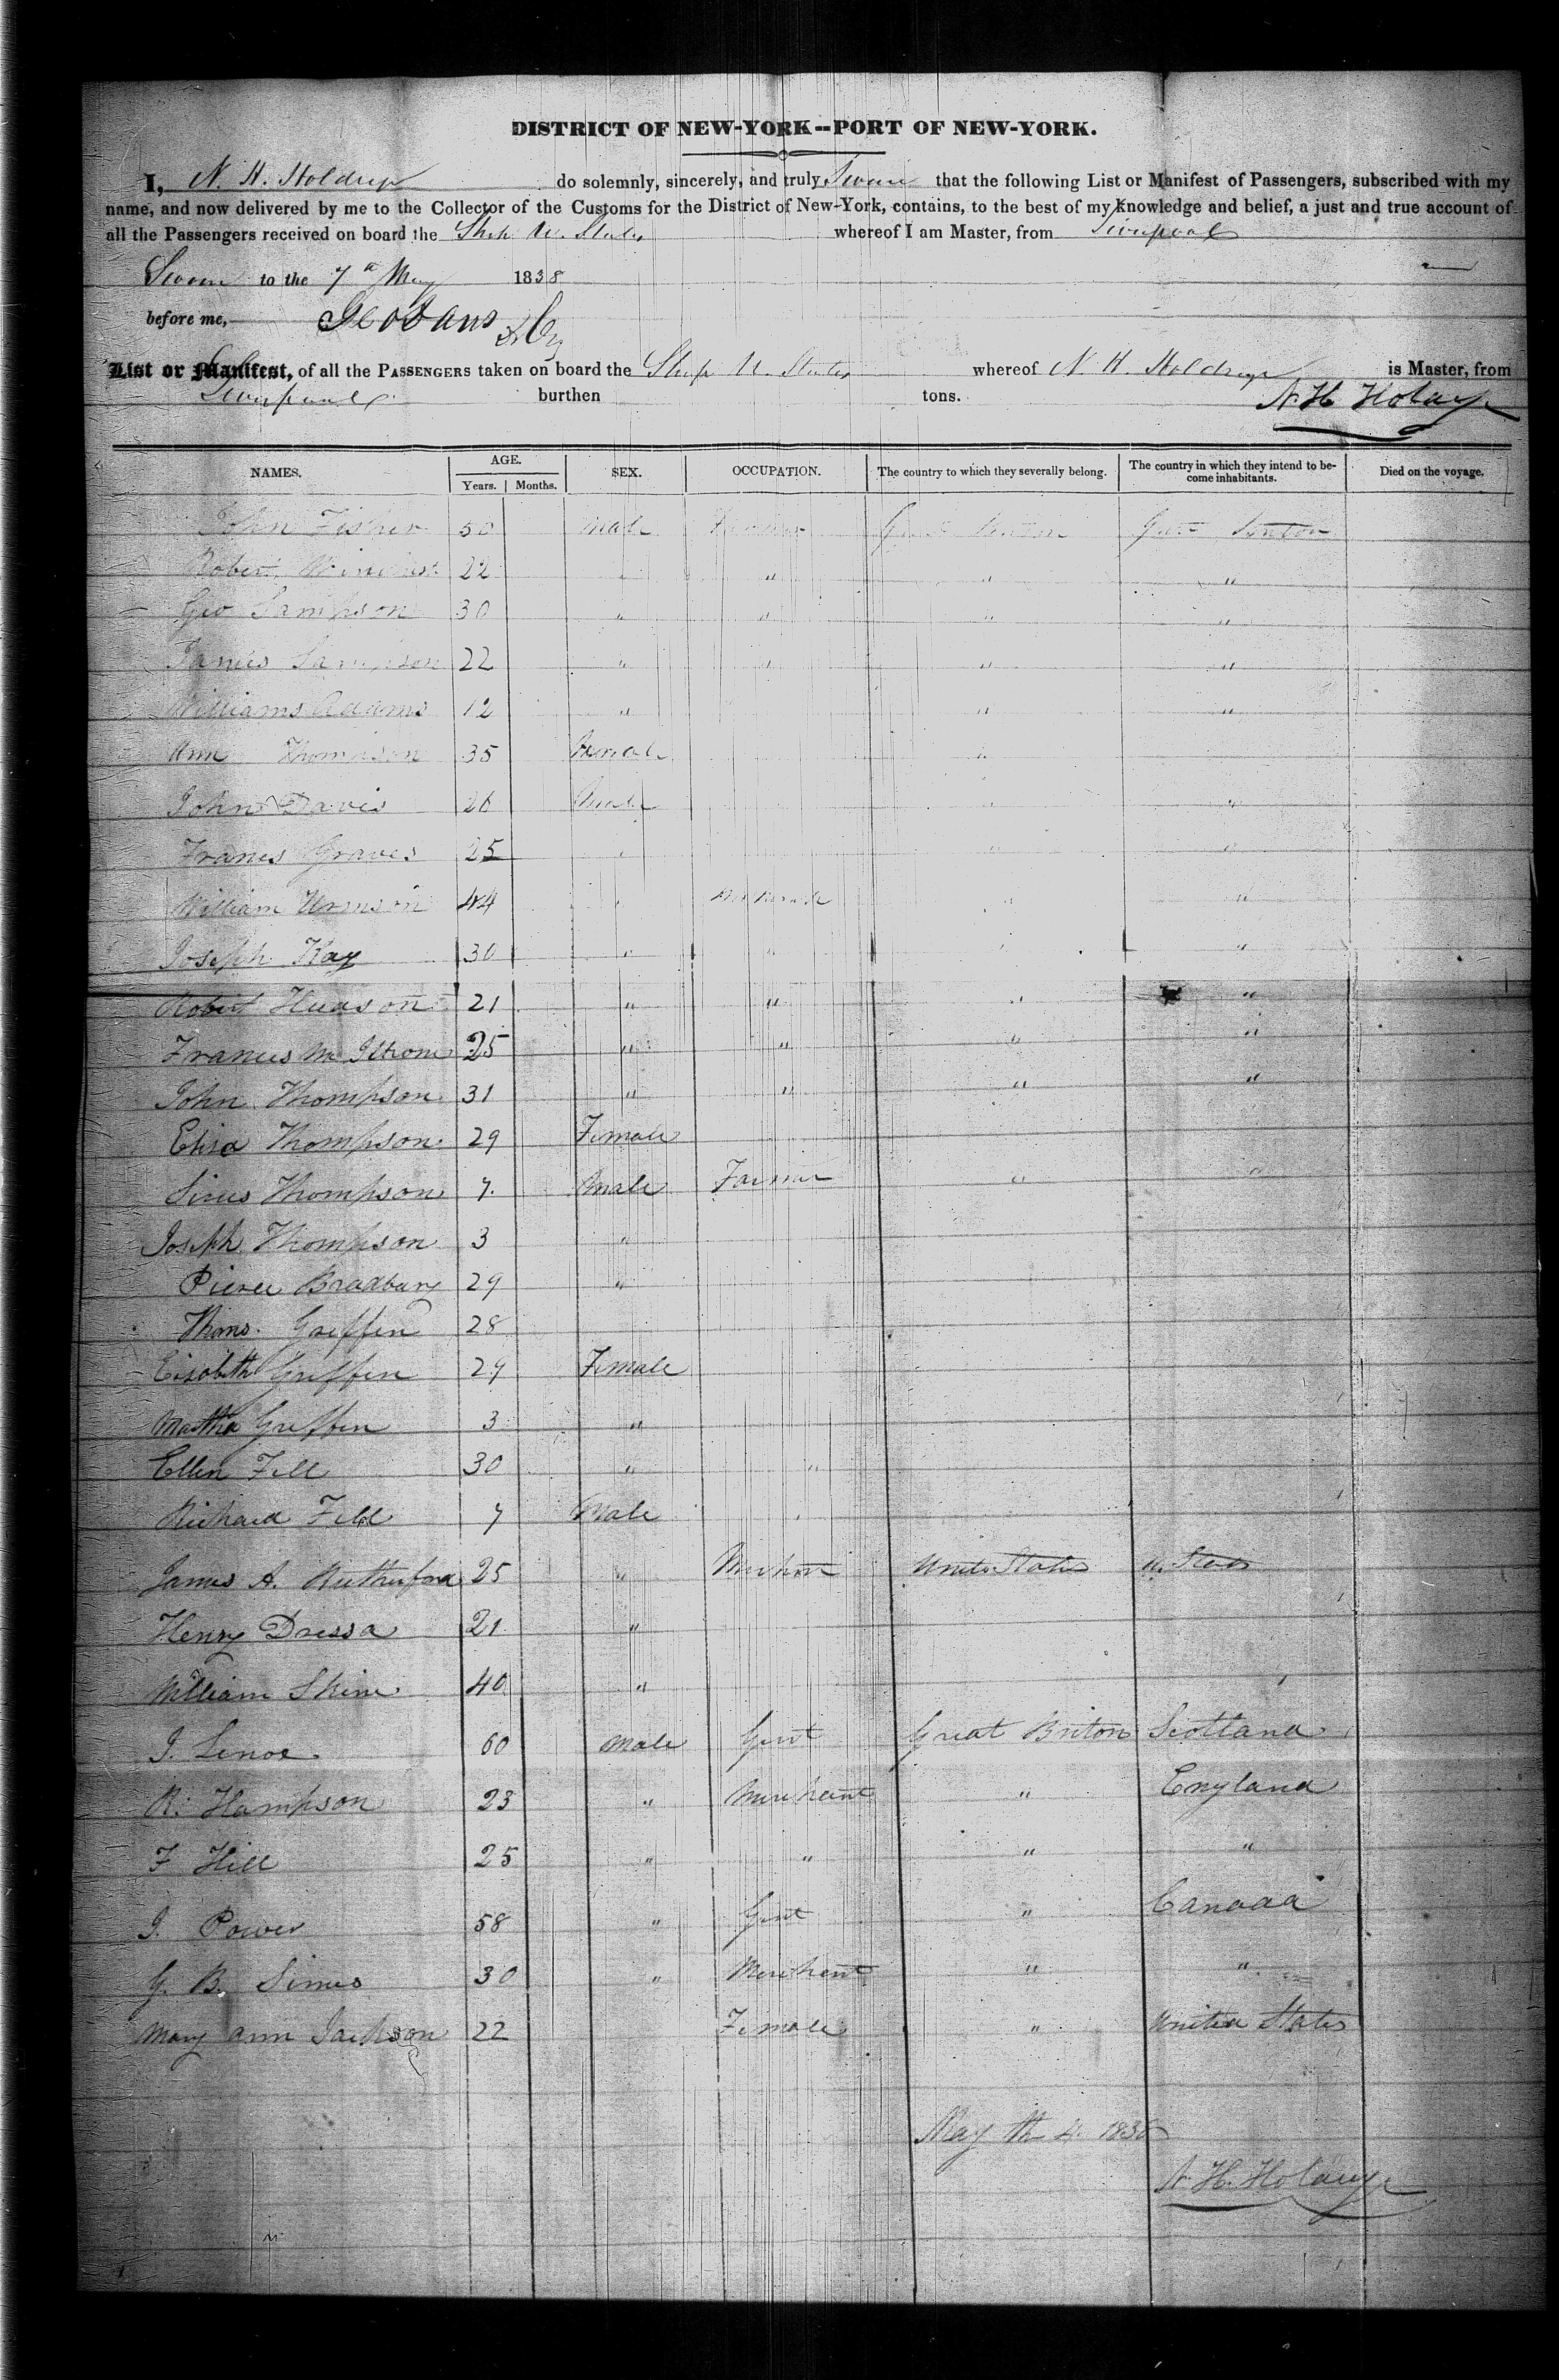 DISTRICT OF NEW-YORK--PORT OF NEW-YORK.
I, N. H. Holdrege do solemnly, sincerely, and truly Swear that the following List or Manifest of Passengers, subscribed with my
name, and now delivered by me to the Collector of the Customs for the District of New-York, contains, to the best of my knowledge and belief, a just and true account of
all the Passengers received on board the Ship U. States whereof I am Master, from Liverpool
Sworn to the 7 May 1838
before me,
List or Manifest, of all the PASSENGERS taken on board the Ship U. States whereof N. H. Holdrege is Master, from
Liverpool burthen tons. N. H. Holdrege
NAMES. AGE. SEX. OCCUPATION. The country to which they severally belong. The country in which they intend to be- Died on the voyage.
Years. Months. come inhabitants.
John Fisher 50 Male Farmer Great Briton Great Briton
Robert 22 " " " "
Geo Sampson 30 " " " "
James Sampson 22 " " " "
Williams Adams 12 " " "
Ann Thompson 35 Female "
John Davis 26 Male " "
Frances Graves 25 " " "
William 44 " " "
Joseph Kay 30 " " " "
Robert Hudson 21 " " " "
Francis 25 " " " "
John Thompson 31 " " " "
Eliza Thompson 29 Female
Thompson 7 Male Farmer " "
Joseph Thompson 3 "
Pierce Bradbury 29 "
Thoms. Griffin 28
Elsabeth Griffin 29 Female
Martha Griffin 3 "
Ellen Fell 30 " "
Richard 7 Male
James A. Rutherford 25 " Merchant United States U. States
Henry Dressa 21 "
William 40 "
J. Lenox 60 Male Gent Great Briton Scotland
R. Hampson 23 " Merchant " England
F Hill 25 " " " "
J. Power 58 " Gent " Canada
G. B. Simes 30 " Merchant " "
Mary ann Jackson 22 Female " United States
May th 4 1838
N. H. Holdrege